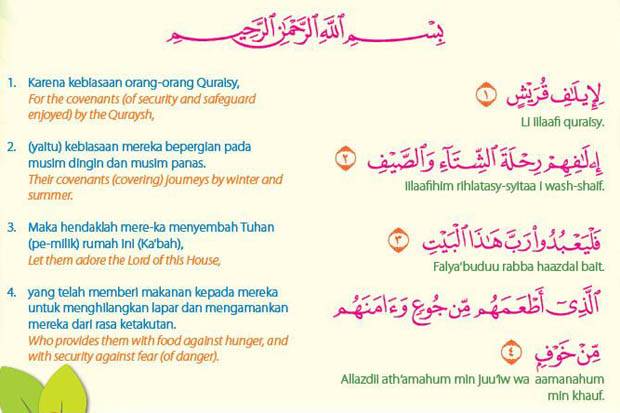 بِسْمِ اللَّهِ الرَّحْمَٰنِ الرَّحِيمِ
1. Karena kebiasaan orang-orang Quraisy,
For the covenants (of security and safeguard
enjoyed) by the Quraysh,
لِإِيلَٰفِ قُرَيْشٍ ١
Li iilaafi quraisy.
2. (yaitu) kebiasaan mereka bepergian pada
musim dingin dan musim panas.
Their covenants (covering) journeys by winter and
summer.
إِۦلَٰفِهِمْ رِحْلَةَ الشِّتَآءِ وَالصَّيْفِ ٢
Iilaafihim rihlatasy-syitaa i wash-shaif.
3. Maka hendaklah mere-ka menyembah Tuhan
(pe-milik) rumah ini (Ka'bah),
Let them adore the Lord of this House,
فَلْيَعْبُدُوا۟ رَبَّ هَٰذَا الْبَيْتِ ٣
Falya'buduu rabba haazdal bait.
4. yang telah memberi makanan kepada mereka
untuk menghilangkan lapar dan mengamankan
mereka dari rasa ketakutan.
Who provides them with food against hunger, and
with security against fear (of danger).
الَّذِىٓ أَطْعَمَهُم مِّن جُوعٍ وَءَامَنَهُم
مِّنْ خَوْفٍۭ ٤
Allazdii ath'amahum min juu'iw wa aamanahum
min khauf.